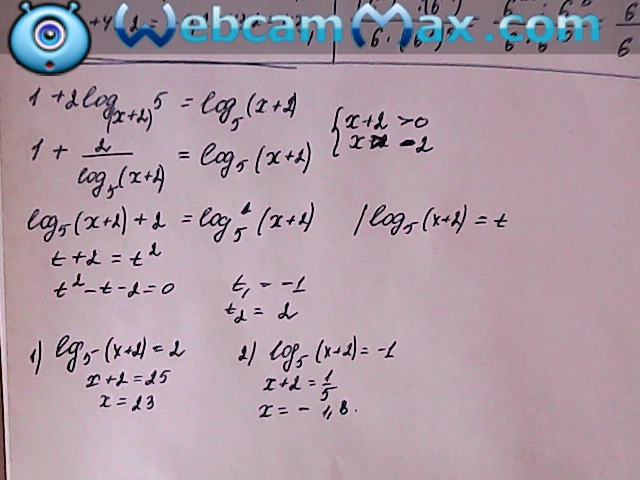 WebcamMax.com
1 + 2log_(x+2) 5 = log_5 (x+2)
{ x+2 > 0
x -2
1 + 2/(log_5 (x+2)) = log_5 (x+2)
log_5 (x+2) + 2 = log_5^2 (x+2) / log_5 (x+2) = t
t + 2 = t^2
t^2 - t - 2 = 0
t_1 = -1
t_2 = 2
1) log_5 (x+2) = 2
x+2 = 25
x = 23
2) log_5 (x+2) = -1
x+2 = 1/5
x = - 1,8.